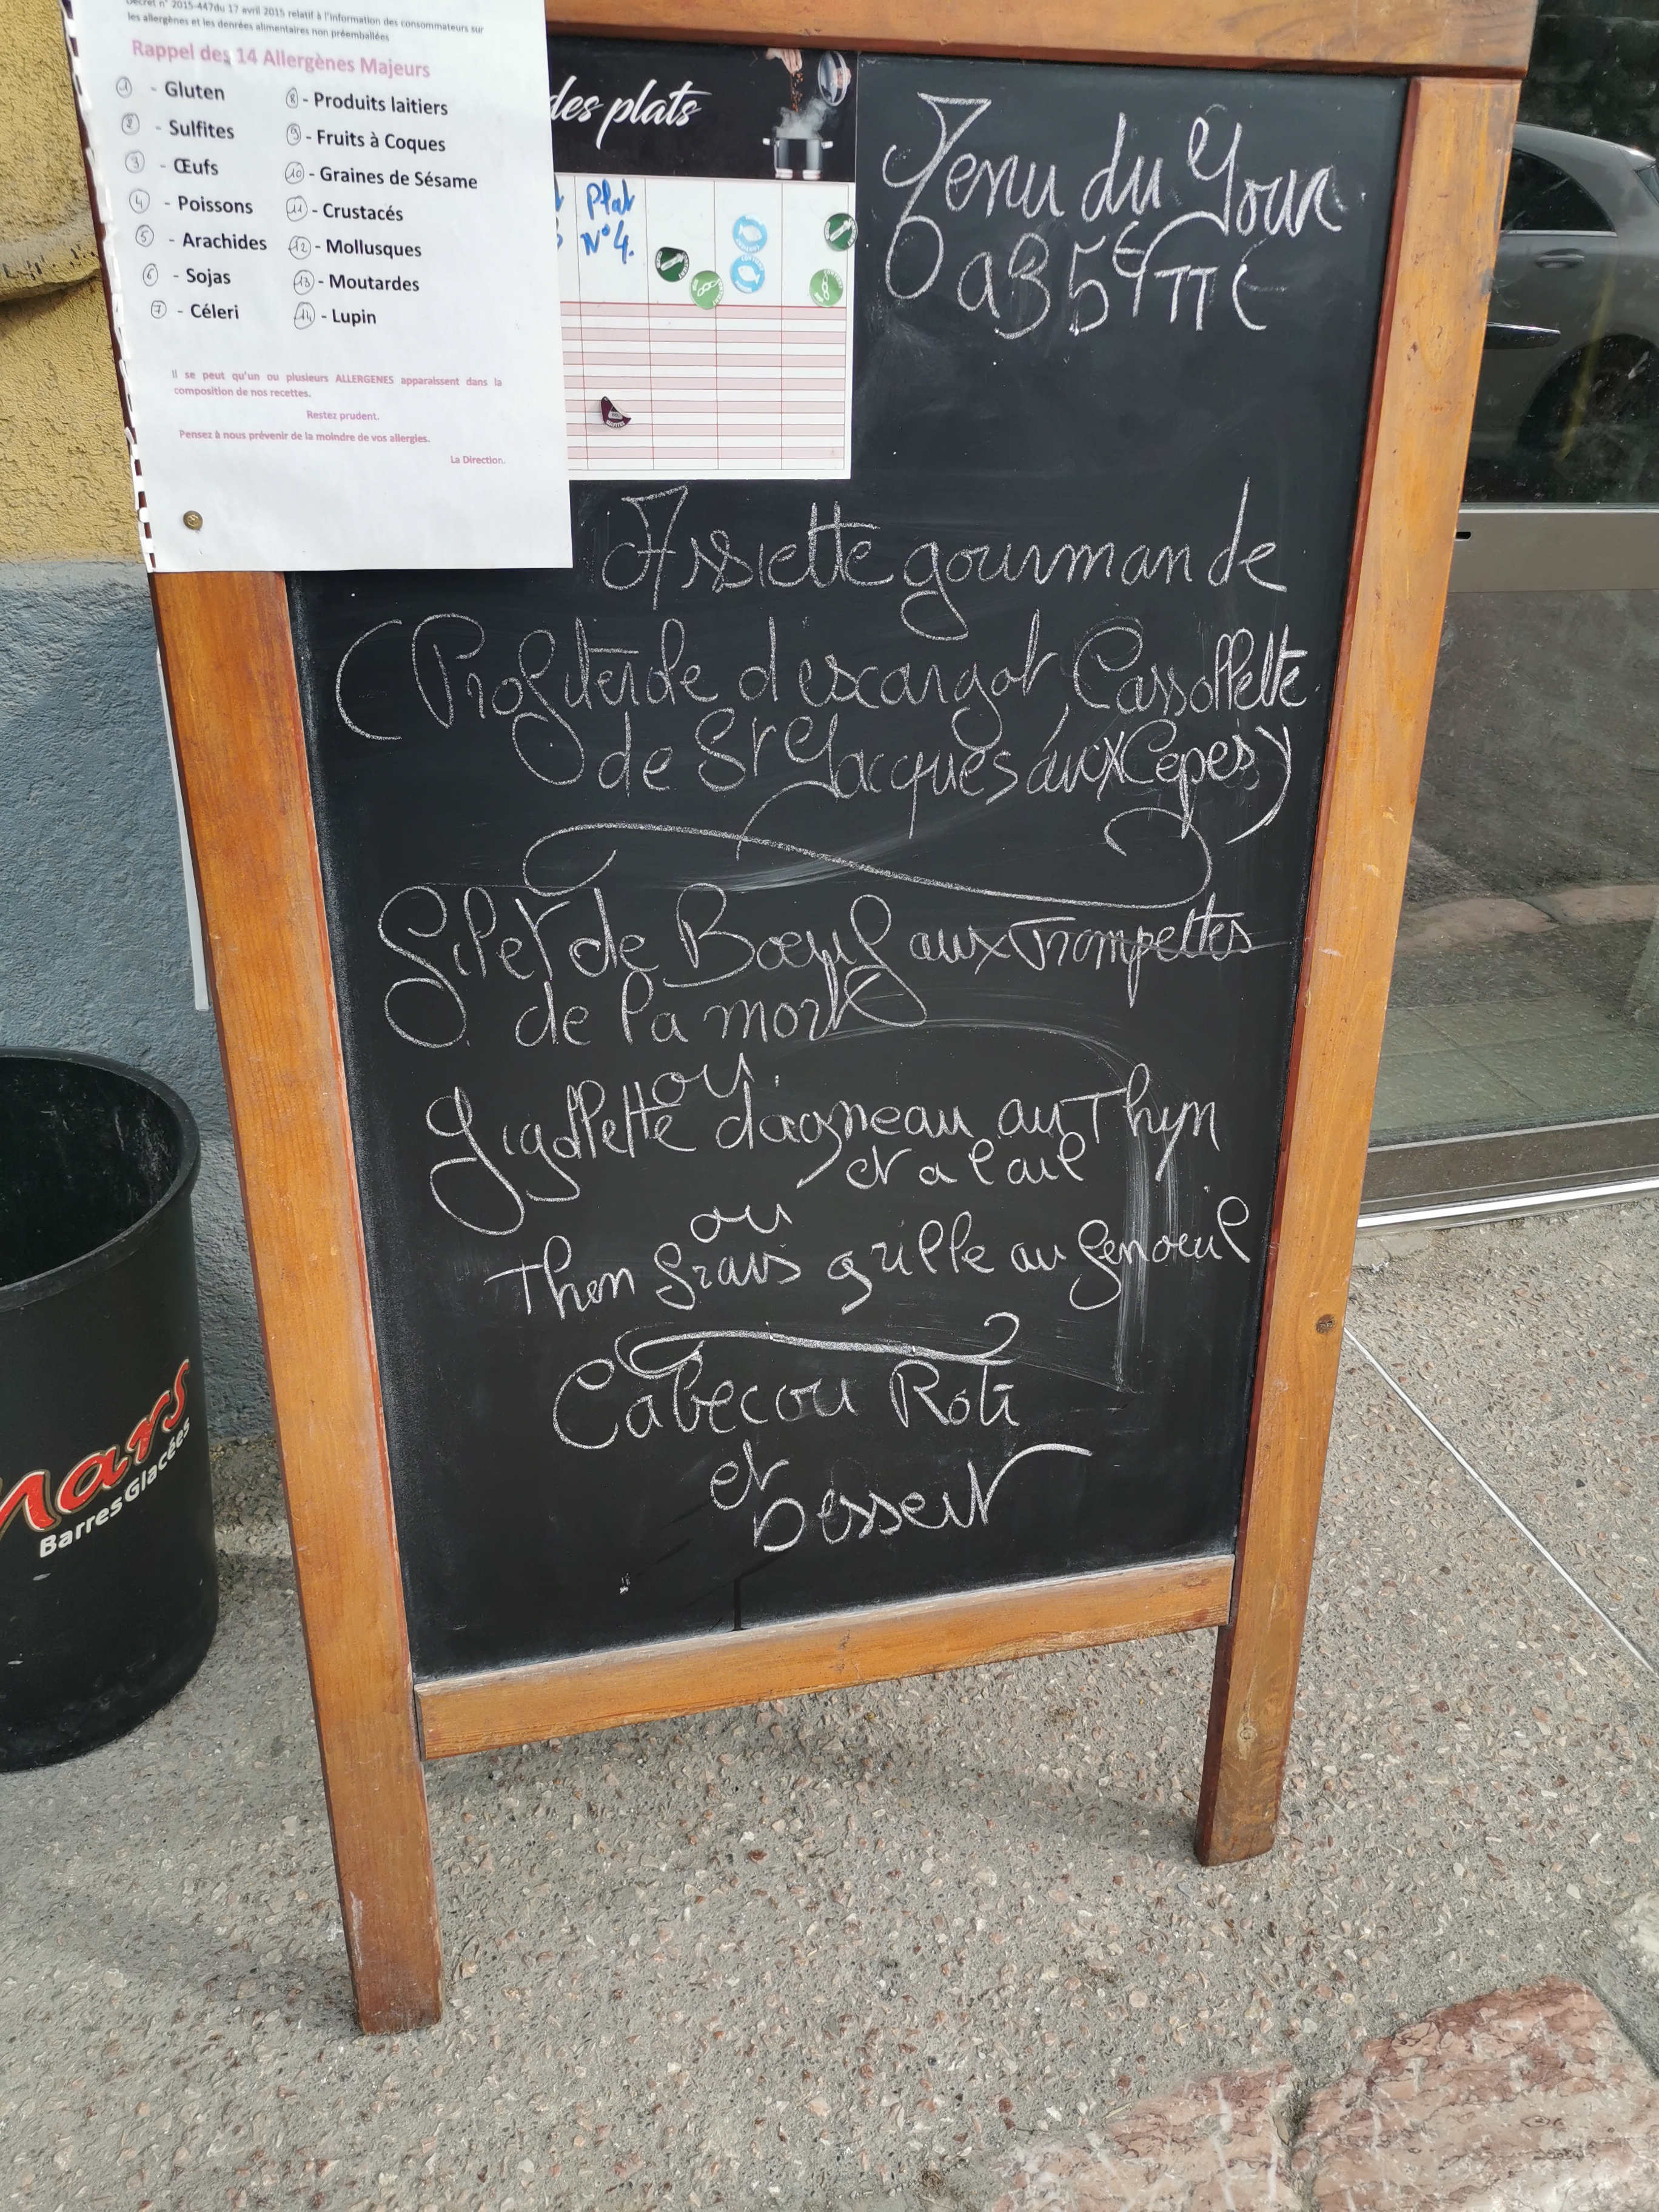 Décret n° 2015-447du 17 avril 2015 relatif à l'information des consommateurs sur
les allergènes et les denrées alimentaires non préemballées
Rappel des 14 Allergènes Majeurs
1 - Gluten
2 - Sulfites
3 - Œufs
4 - Poissons
5 - Arachides
6 - Sojas
7 - Céleri
8 - Produits laitiers
9 - Fruits à Coques
10 - Graines de Sésame
11 - Crustacés
12 - Mollusques
13 - Moutardes
14 - Lupin
Il se peut qu'un ou plusieurs ALLERGENES apparaissent dans la
composition de nos recettes.
Restez prudent.
Pensez à nous prévenir de la moindre de vos allergies.
La Direction.
des plats
Plat
N°4.
Menu du Jour
a 35€ TTC
Assiette gourmande
(Profiterole d'escargot Cassollette
de St Jacques aux Cèpes)
Filet de Bœuf aux Trompettes
de la mort
ou
Gigollette d'agneau au Thym
et a l ail
ou
Thon frais grille au fenouil
Cabecou Roti
et
Dessert
Mars
Barres Glacées